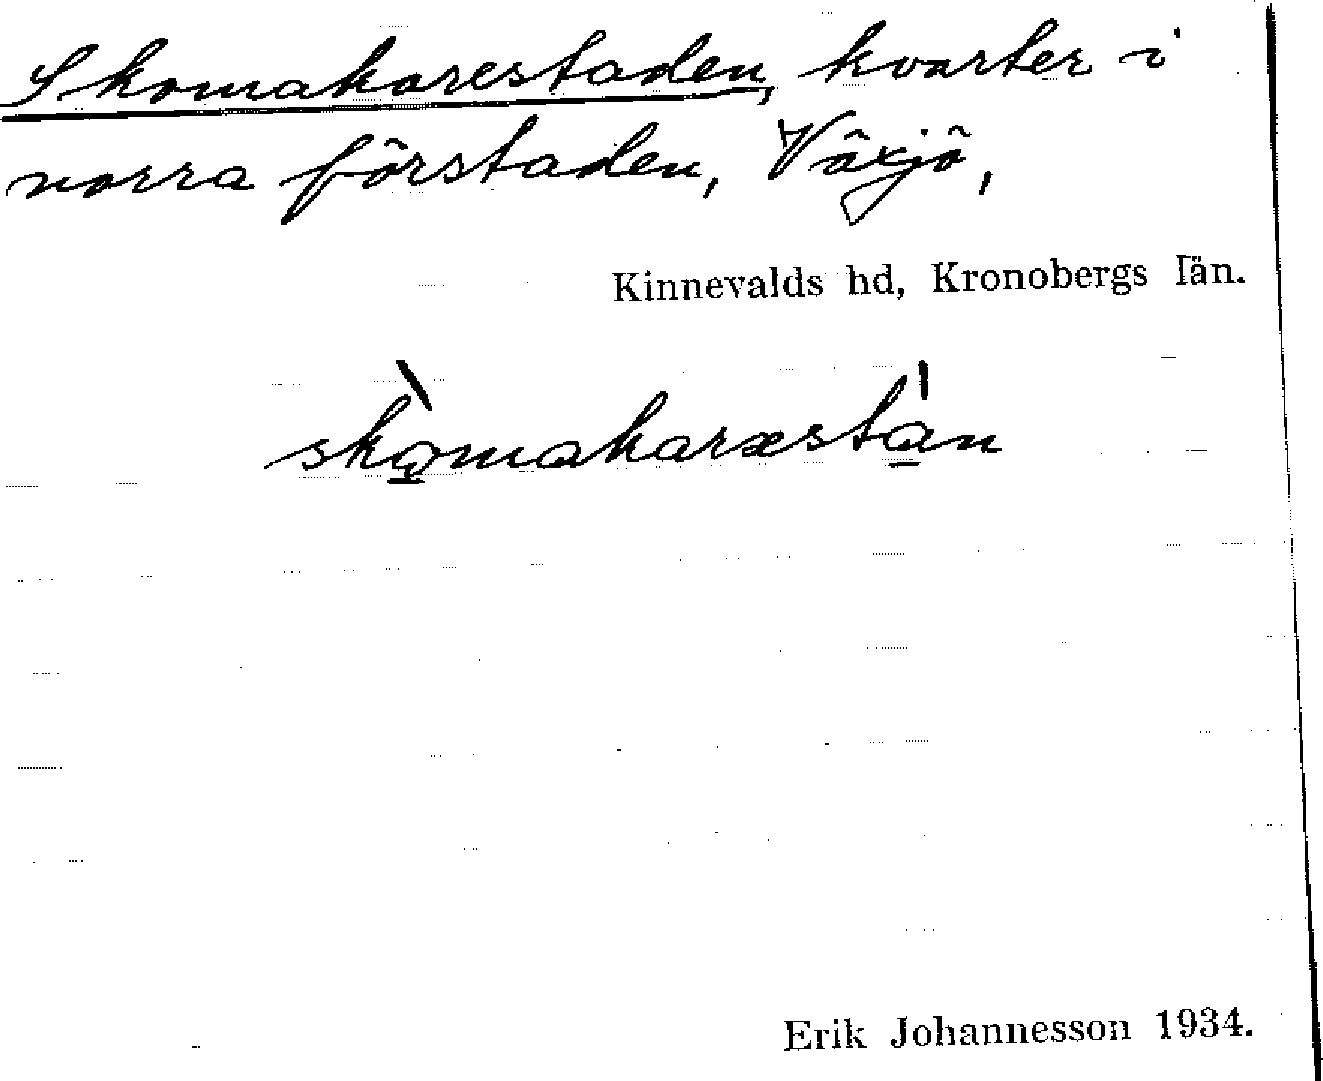 Skomakarestaden, kvarter i
norra förstaden, Växjö,
Kinnevalds hd, Kronobergs län.
skò̱makaræstá̱n
Erik Johannesson 1934.